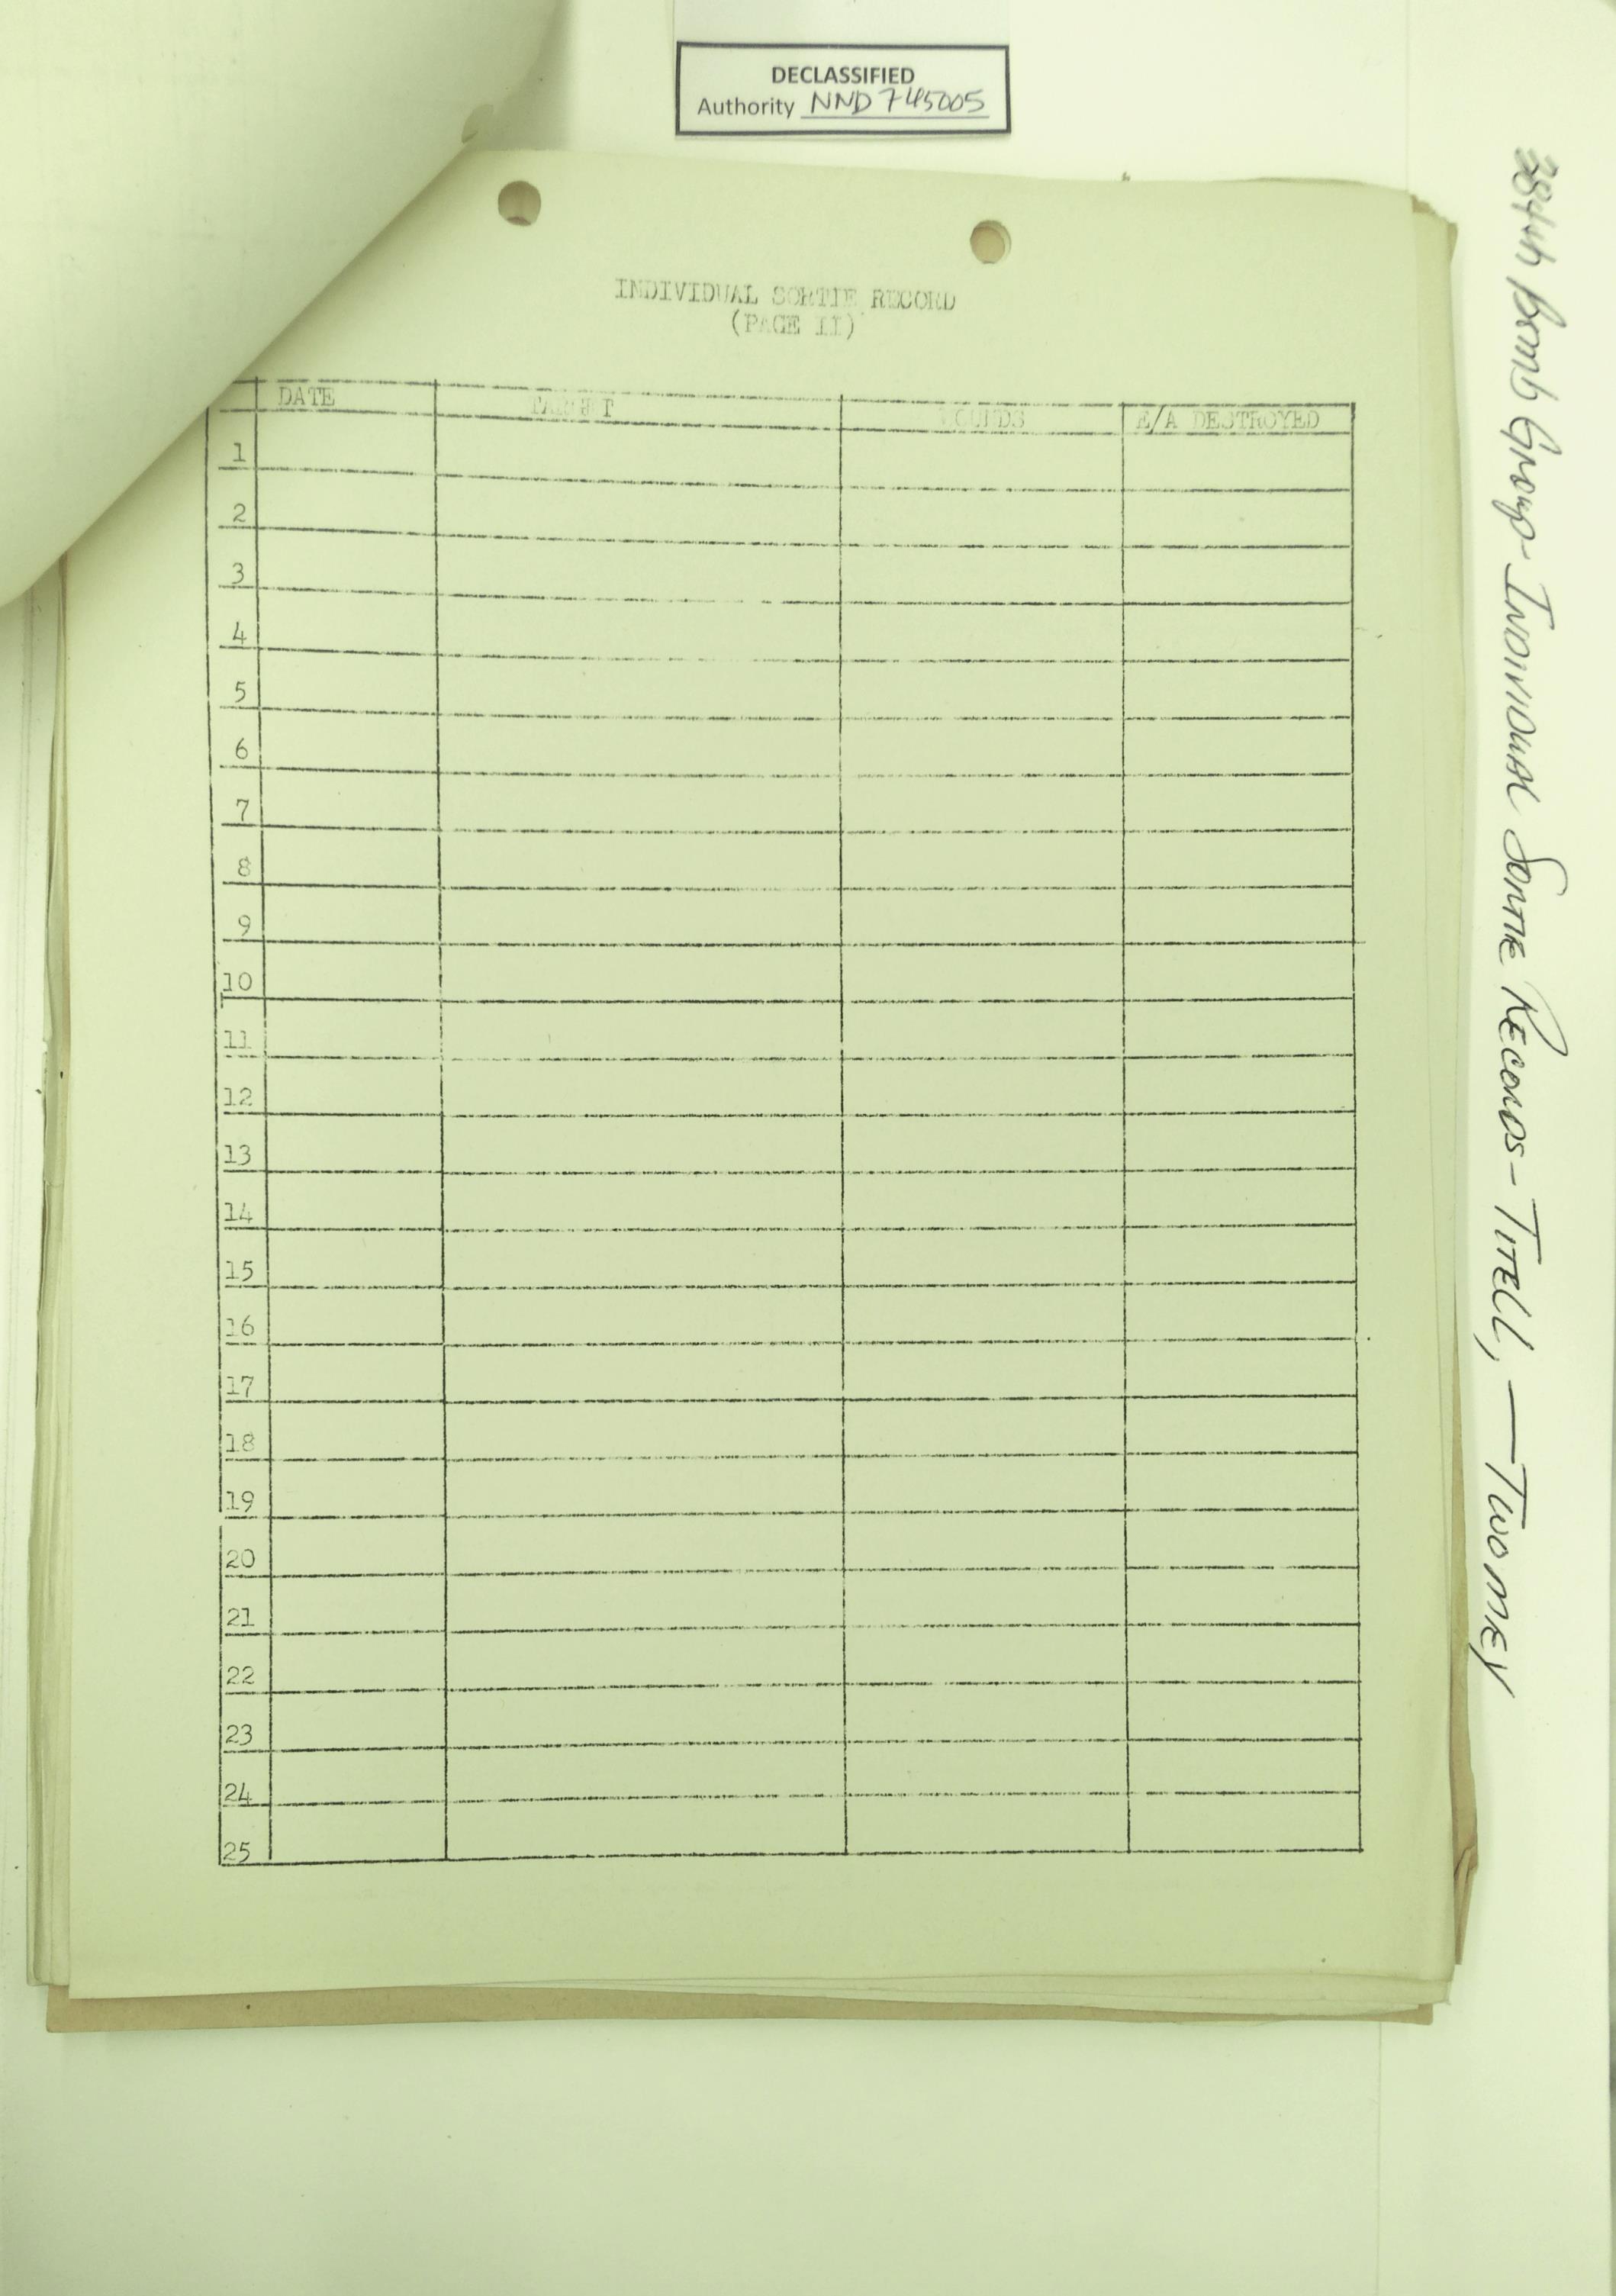 DECLASSIFIED
Authority NND 745005
INDIVIDUAL SORTIE RECORD
(PAGE II)
DATE TARGET WOUNDS E/A DESTROYED
1
2
3
4
5
6
7
8
9
10
11
12
13
14
15
16
17
18
19
20
21
22
23
24
25
384th Bomb Group - Individual Sortie Records - Titell, — Twomey